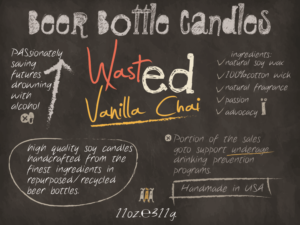 Beer Bottle Candles
PASsionately
saving
futures
drowning
with
alcohol
Wasted
Vanilla Chai
ingredients:
✓natural soy wax
✓100%cotton wick
✓natural fragrance
✓passion
✓advocacy
high quality soy candles
handcrafted from the
finest ingredients in
repurposed/recycled
beer bottles.
Portion of the sales
goto support underage
drinking prevention
programs
Handmade in USA
11oz℮311g